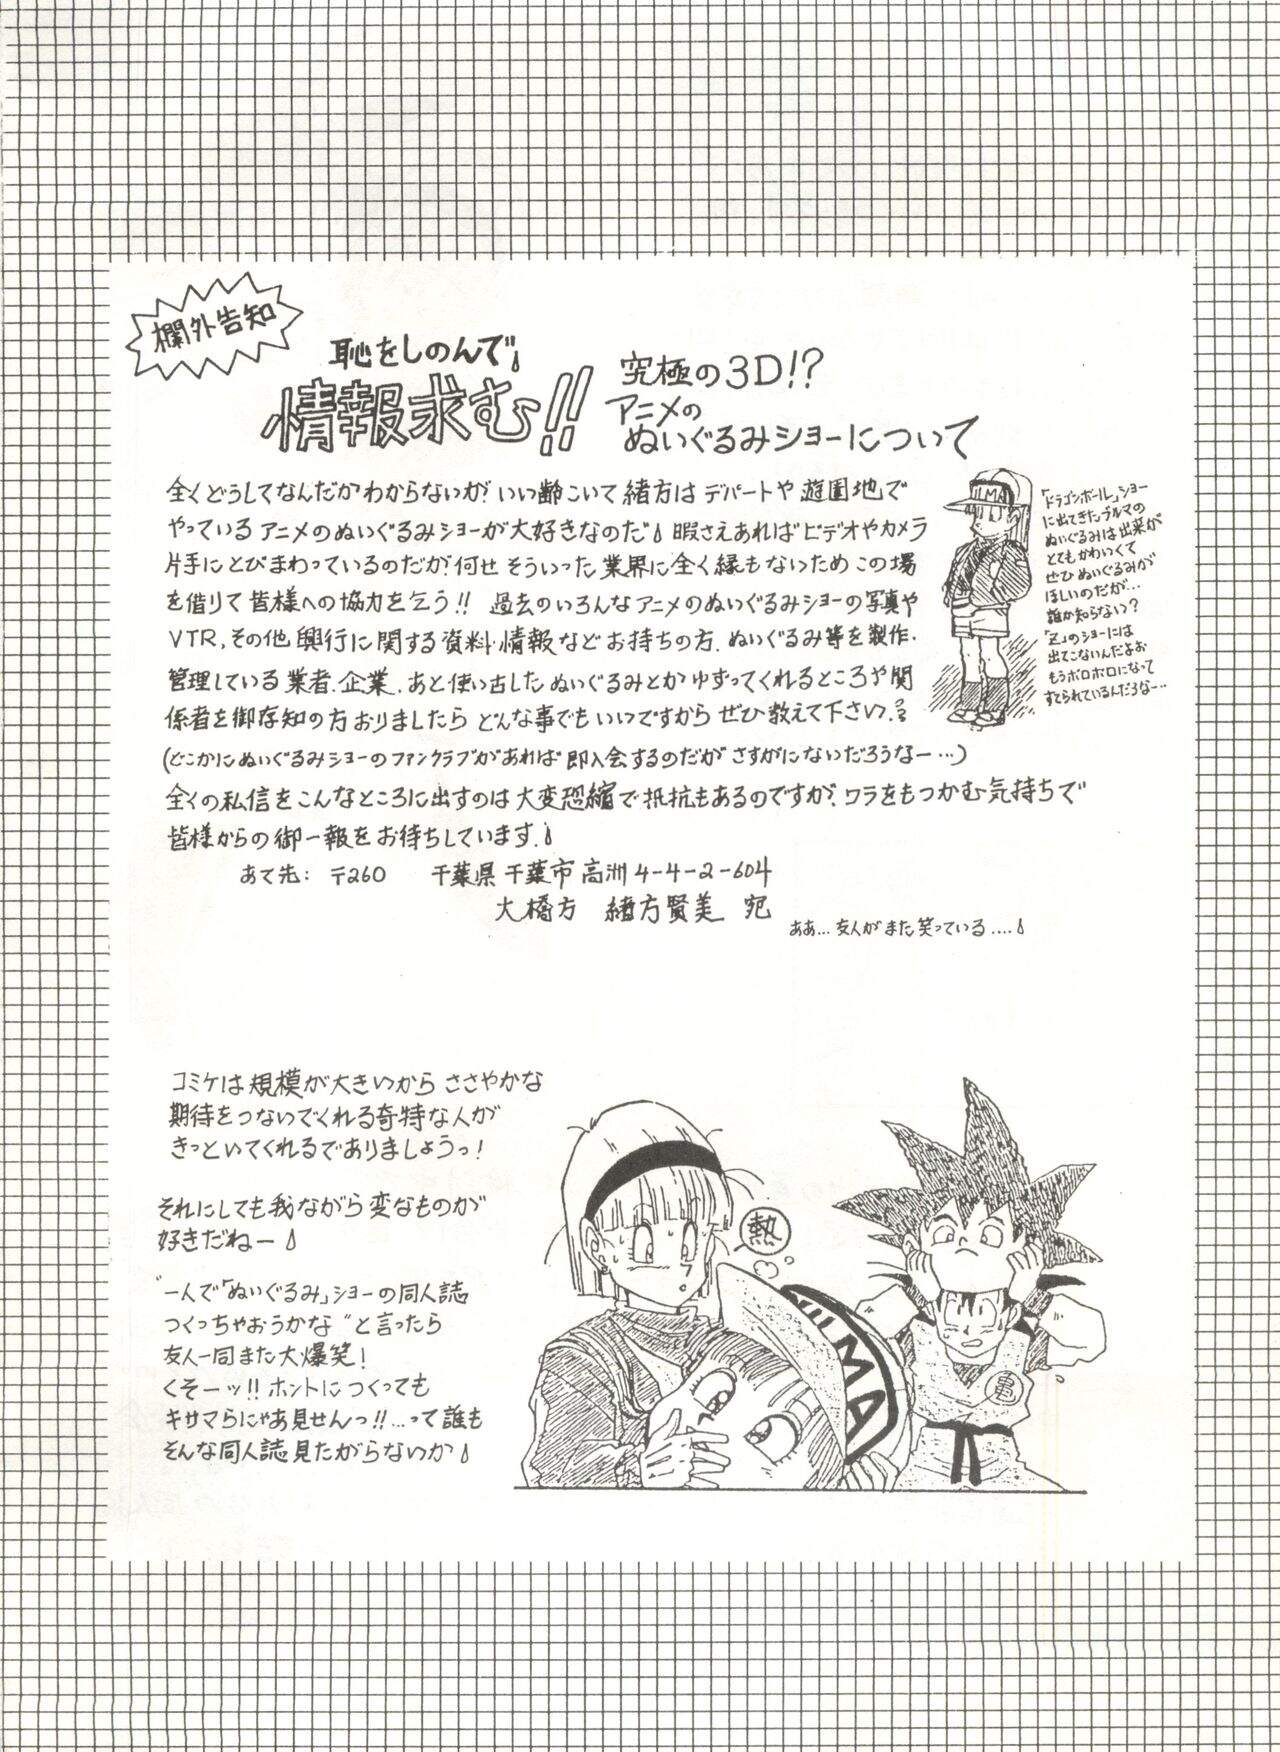 欄外告知
恥をしのんで
情報求む!!
究極の3D!?
アニメの
ぬいぐるみショーについて
全くどうしてなんだかわからないが、いい齢こいて緒方はデパートや遊園地で
やっているアニメのぬいぐるみショーが大好きなのだ 暇さえあればビデオやカメラ
片手にとびまわっているのだが、何せそういった業界に全く縁もないためこの場
を借りて皆様への協力を乞う!! 過去のいろんなアニメのぬいぐるみショーの写真や
VTR、その他興行に関する資料・情報などお持ちの方、ぬいぐるみ等を製作・
管理している業者、企業、あと使い古したぬいぐるみとかゆずってくれるところや関
係者を御存知の方おりましたらどんな事でもいいですからぜひ教えて下さい。
(どこかにぬいぐるみショーのファンクラブがあれば即入会するのだがさすがにないだろうなー…)
全くの私信をこんなところに出すのは大変恐縮で抵抗もあるのですが、ワラをもつかむ気持ちで
皆様からの御一報をお待ちしています。
あて先: 〒260 千葉県千葉市高洲4-4-2-604
大橋方 緒方賢美 宛
ああ…友人がまた笑っている….
「ドラゴンボール」ショー
に出てきたブルマの
ぬいぐるみは出来が
とてもかわいくて
ぜひぬいぐるみが
ほしいのだが…
誰か知らない?
「Z」のショーには
出てこないんだよお
もうボロボロになって
すてられているんだろなー…
ILMA
コミケは規模が大きいからささやかな
期待をつないでくれる奇特な人が
きっといてくれるでありましょうっ!
それにしても我ながら変なものが
好きだねー
"一人で「ぬいぐるみ」ショーの同人誌
つくっちゃおうかな"と言ったら
友人一同また大爆笑!
くそーッ!! ホントにつくっても
キサマらにゃあ見せんっ!!…って誰も
そんな同人誌見たがらないか
熱
ULMA
亀